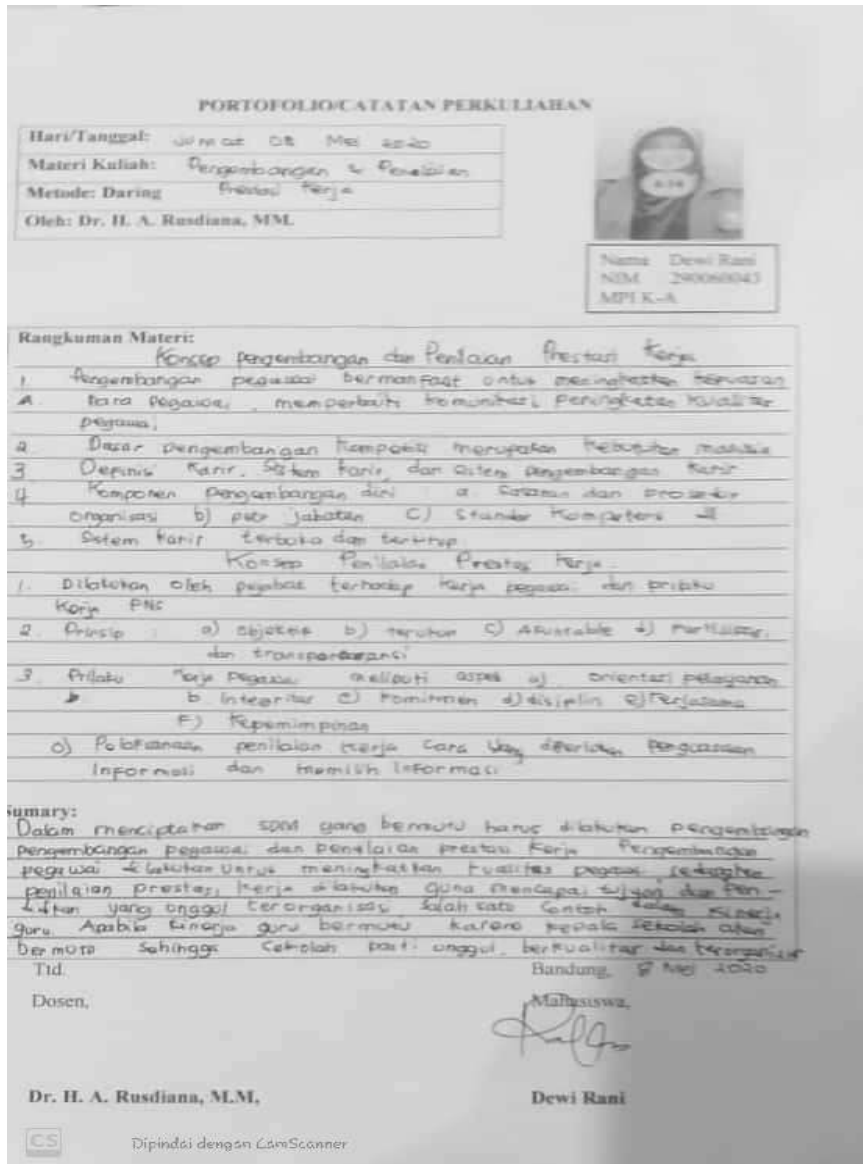 PORTOFOLIO/CATATAN PERKULIAHAN
Hari/Tanggal: Jumat 08 Mei 2020
Materi Kuliah: Pengembangan & Penilaian
Metode: Daring Prestasi Kerja
Oleh: Dr. H. A. Rusdiana, MM.
Nama Dewi Rani
NIM. 290060043
MPI K-A
Rangkuman Materi:
Konsep pengembangan dan Penilaian Prestasi Kerja
1. Pengembangan pegawai bermanfaat untuk meningkatkan
A. para pegawai, memperbaiki komunikasi, Peningkatan kualitas
pegawai
2 Dasar pengembangan merupakan kebutuhan
3 Depinisi Karir, Sistem karir, dan sistem pengembangan karir
4 Komponen pengembangan diri : a. dan prosedur
organisasi b) jabatan C) Standar Kompetensi
5. Sistem karir terbuka dan tertutup
Konsep Penilaian Prestasi Kerja
1. Dilakukan oleh pejabat terhadap kerja pegawai dan prilaku
Kerja PNS
2. Prinsip : a) objektif b) terukur C) Akuntable d) Partisipasi,
dan
3. Prilaku Kerja Pegawai meliputi aspek a) orientasi pelayanan
b Integritas c) Komitmen d) disiplin e) Kerjasama
F) Kepemimpinan
o) Pelaksanaan penilaian kerja cara yang
Informasi dan memilih Informasi
Sumary:
Dalam menciptakan SDM yang bermutu harus dilakukan pengembangan
pengembangan pegawai dan penilaian prestasi kerja Pengembangan
pegawai dilakukan Untuk meningkatkan kualitas pegawai, sedangkan
penilaian prestasi kerja dilakukan guna mencapai tujuan dan Pen-
didikan yang unggul terorganisasi Salah satu Contoh dalam kinerja
guru. Apabila kinerja guru bermutu karena kepala sekolah akan
bermutu Sehingga Sekolah pasti unggul, berkualitas dan terorganisir
Ttd. Bandung, 8 Mei 2020
Dosen, Mahasiswa,
Dr. H. A. Rusdiana, M.M, Dewi Rani
CS Dipindai dengan CamScanner